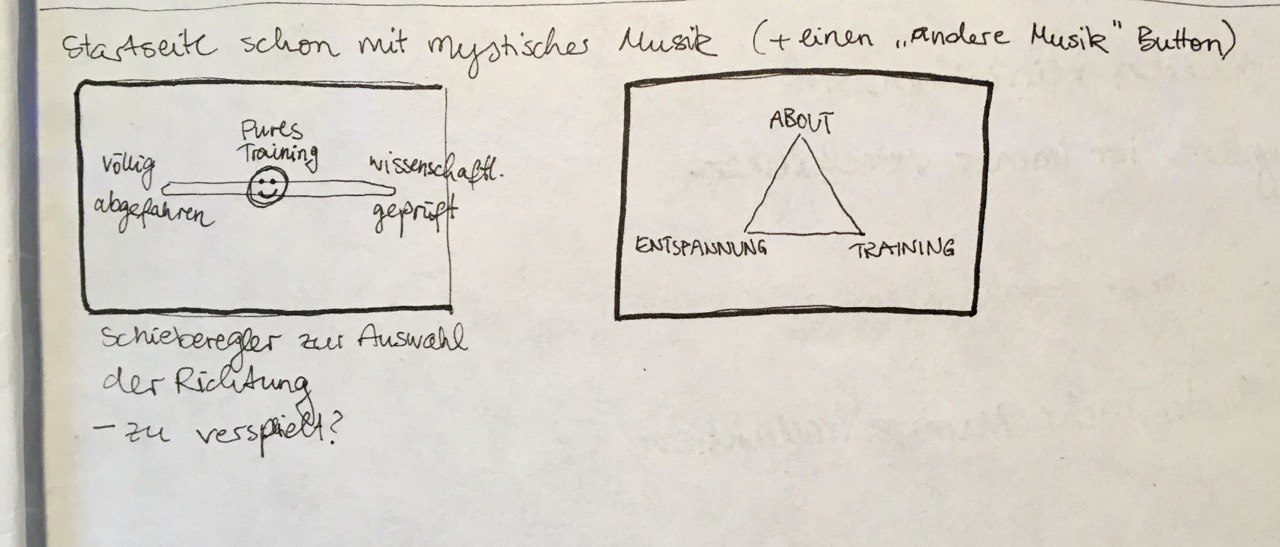 Startseite schon mit mystischer Musik (+ einen „andere Musik" Button)
Pures
Training
völlig
abgefahren
wissenschaftl.
geprüft
Schieberegler zur Auswahl
der Richtung
– zu verspielt?
ABOUT
ENTSPANNUNG
TRAINING